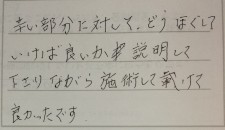 辛い部分に対して、どうほぐして
いければ良いか説明して
下さりながら施術して戴けて
良かったです